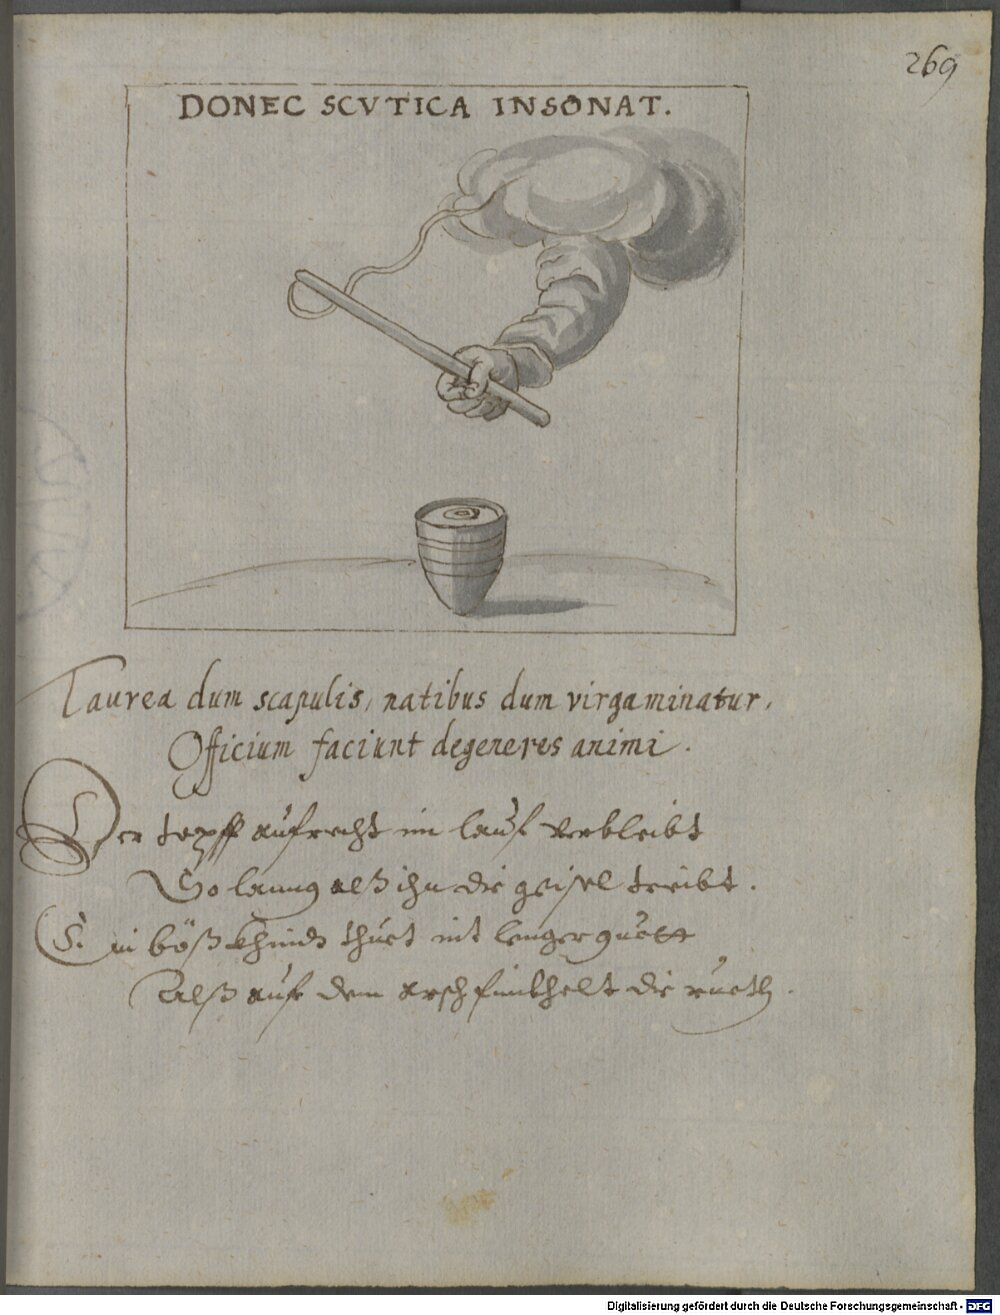 269
DONEC SCVTICA INSONAT.
Taurea dum scapulis, natibus dum virga minatur,
Officium faciunt degeneres animi.
Der topff aufrecht im lauf verbleibt
So lanng alß ihn die geisel treibt.
Ein böß khindt thuet nit lenger guett
Alß auf dem arsch funkhelt die rueth.
Digitalisierung gefördert durch die Deutsche Forschungsgemeinschaft - DFG